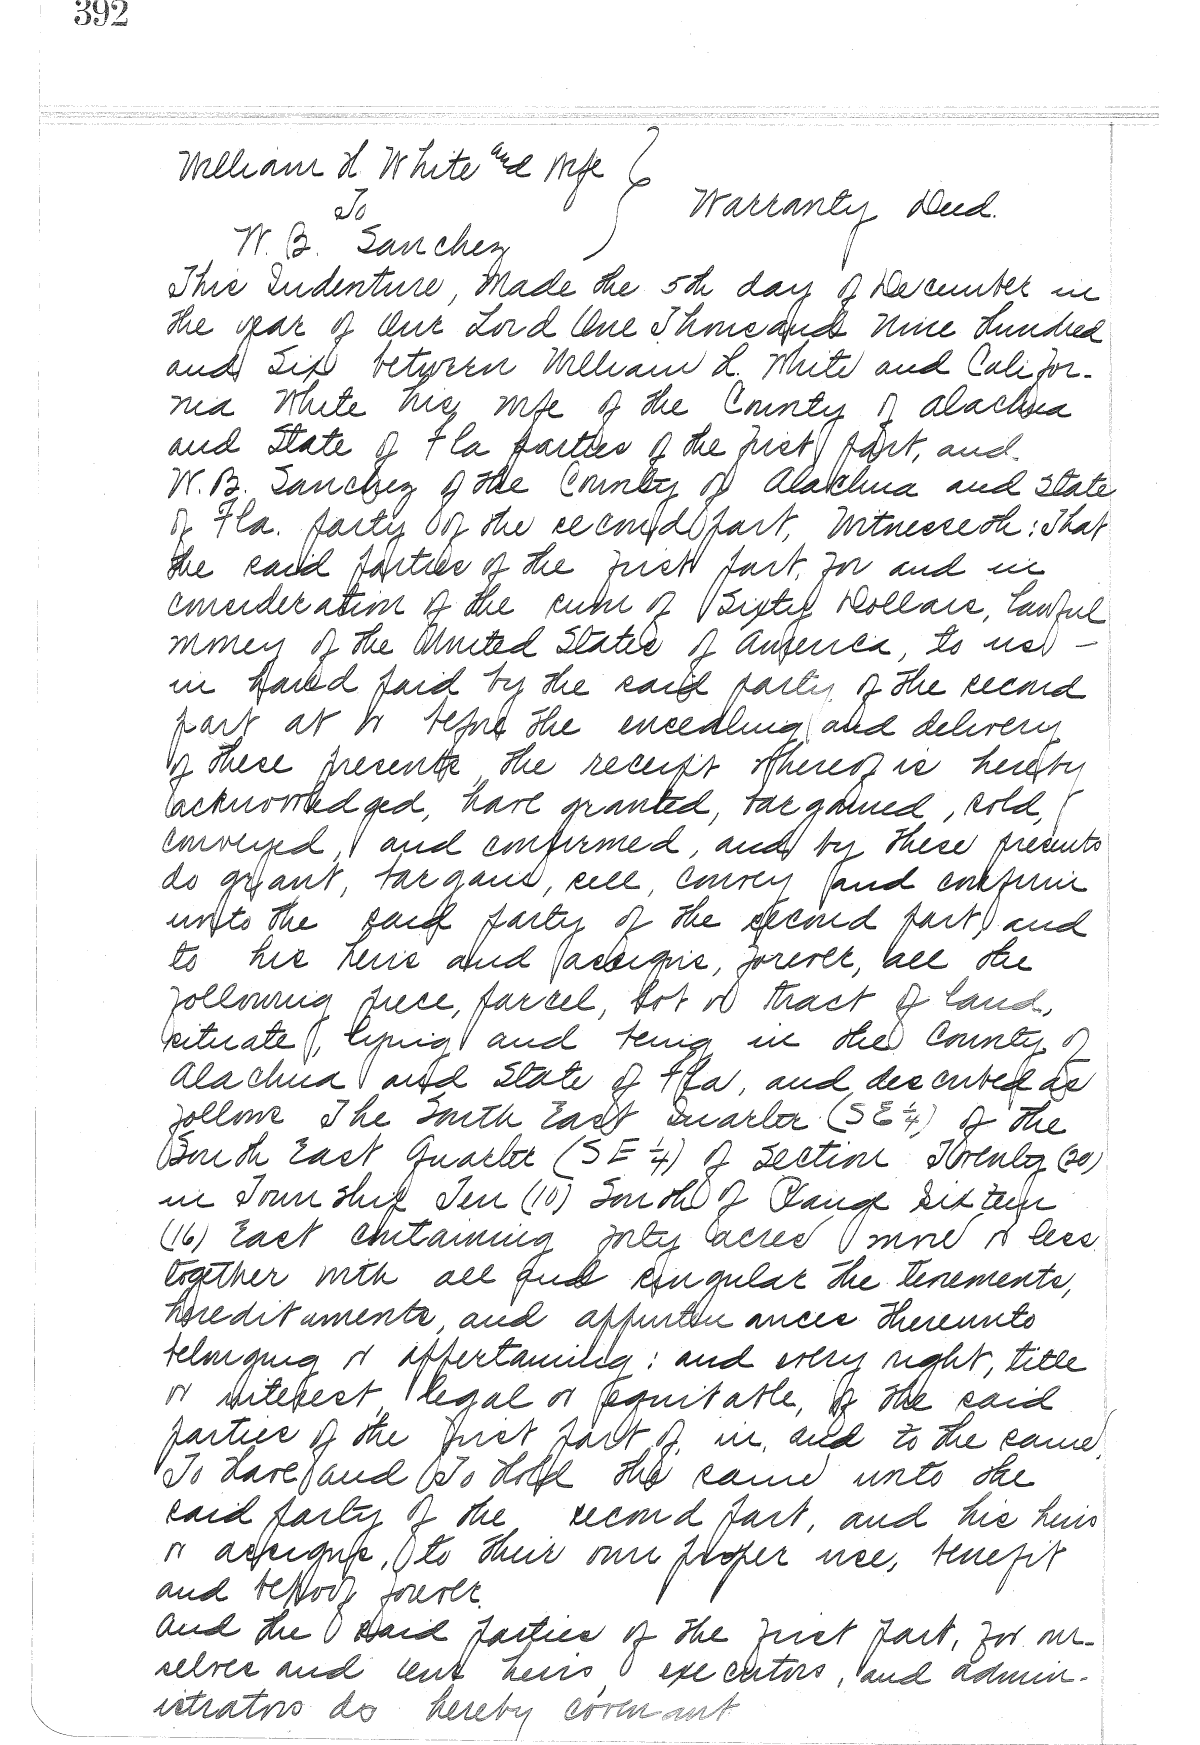 392
William H White and Wife
To
Warranty Deed.
W. B. Sanchez
This Indenture, Made the 5th day of December in
the year of Our Lord One Thousand Nine Hundred
and Six between William H. White and Califor-
nia White his wife of the County of Alachua
and State of Fla parties of the first part, and
W. B. Sanchez of the County of Alachua and State
of Fla. party of the second part, Witnesseth: That
the said parties of the first part, for and in
consideration of the sum of Sixty Dollars, lawful
money of the United States of America, to us -
in hand paid by the said party of the second
part at or before the ensealing and delivery
of these presents, the receipt whereof is hereby
acknowledged, have granted, bargained, sold,
conveyed, and confirmed, and by these presents
do grant, bargain, sell, convey and confirm
unto the said party of the second part, and
to his heirs and assigns, forever, all the
following piece, parcel, lot or tract of land,
situate, lying and being in the County of
Alachua and State of Fla, and described as
follows The South East Quarter (SE 1/4) of the
South East Quarter (SE 1/4) of Section Twenty (20)
in Township Ten (10) South of Range Sixteen
(16) East containing forty acres more or less
together with all and singular the tenements,
hereditaments, and appurtenances thereunto
belonging or appertaining: and every right, title
or interest, legal or equitable, of the said
parties of the first part of, in, and to the same,
To Have and To Hold the same unto the
said party of the second part, and his heirs
or assigns, to their own proper use, benefit
and behoof forever.
And the said parties of the first part, for our-
selves and our heirs, executors, and admin-
istrators do hereby covenant